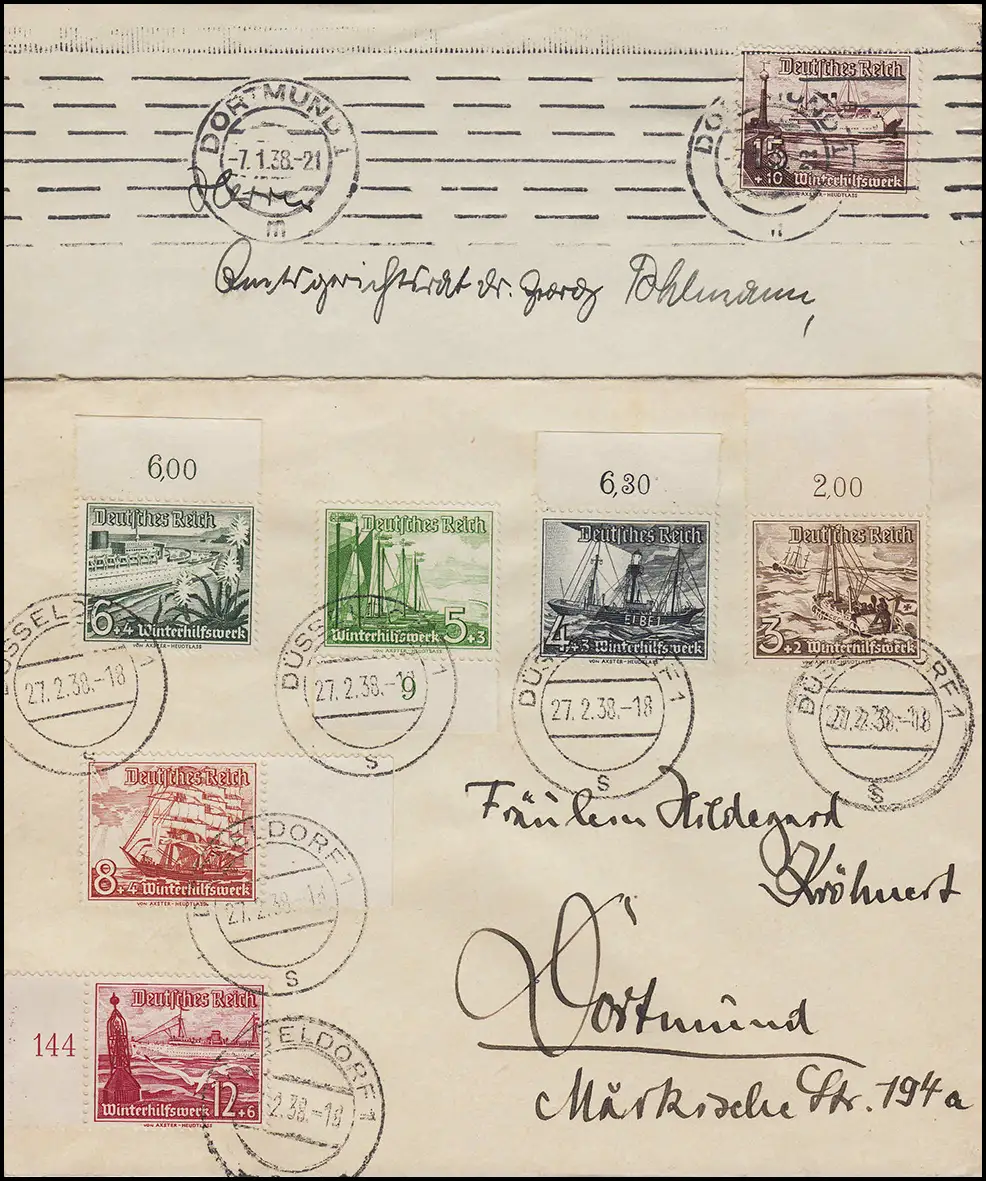 DORTMUND 1
-7.1.38.-21
m
Deutsches Reich
15
+10 Winterhilfswerk
VON AXSTER-HEUDTLASS
Herrn
Amtsgerichtsrat Dr. Georg Pohlmann,
6,00
Deutsches Reich
6+4 Winterhilfswerk
VON AXSTER-HEUDTLASS
DÜSSELDORF 1
27.2.38.-18
s
Deutsches Reich
Winterhilfswerk 5+3
VON AXSTER-HEUDTLASS
9
DÜSSELDORF 1
27.2.38.-18
s
6,30
Deutsches Reich
ELBE 1
4+3 Winterhilfswerk
VON AXSTER-HEUDTLASS
DÜSSELDORF 1
27.2.38.-18
s
2,00
Deutsches Reich
3+2 Winterhilfswerk
VON AXSTER-HEUDTLASS
DÜSSELDORF 1
27.2.38.-18
s
Deutsches Reich
8+4 Winterhilfswerk
VON AXSTER-HEUDTLASS
DÜSSELDORF 1
27.2.38.-18
s
144
Deutsches Reich
Winterhilfswerk 12+6
VON AXSTER-HEUDTLASS
DÜSSELDORF 1
2.38.-18
Fräulein Hildegard
Kröhnert
Dortmund
Märkische Str. 194a